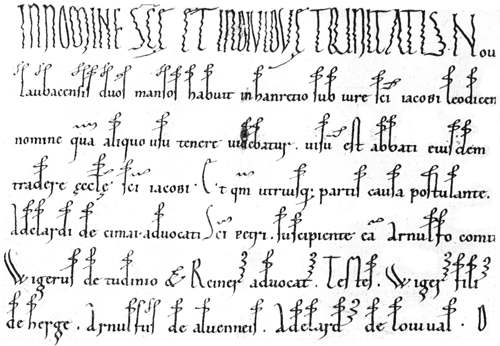 IN NOMINE SCE ET INDIVIDVE TRINITATIS. Nou
Laubacensis duos mansos habuit in hanretio sub iure sci iacobi leodicen
nomine qua aliquo usu tenere uidebatur. uisu est abbati eiusdem
tradere eccle sci iacobi. Et qm utriusq; partis causa postulante.
Adelardi de cimai. aduocati Sci petri. suscipiente ea Arnulfo comi
Wigerus de tudinio & Reiner aduocat. Testes. Wiger fili
de herge. Arnulfus de aluennes. Adelard de louual. D